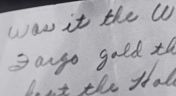 Was it the W
Fargo gold th
kept the Hol